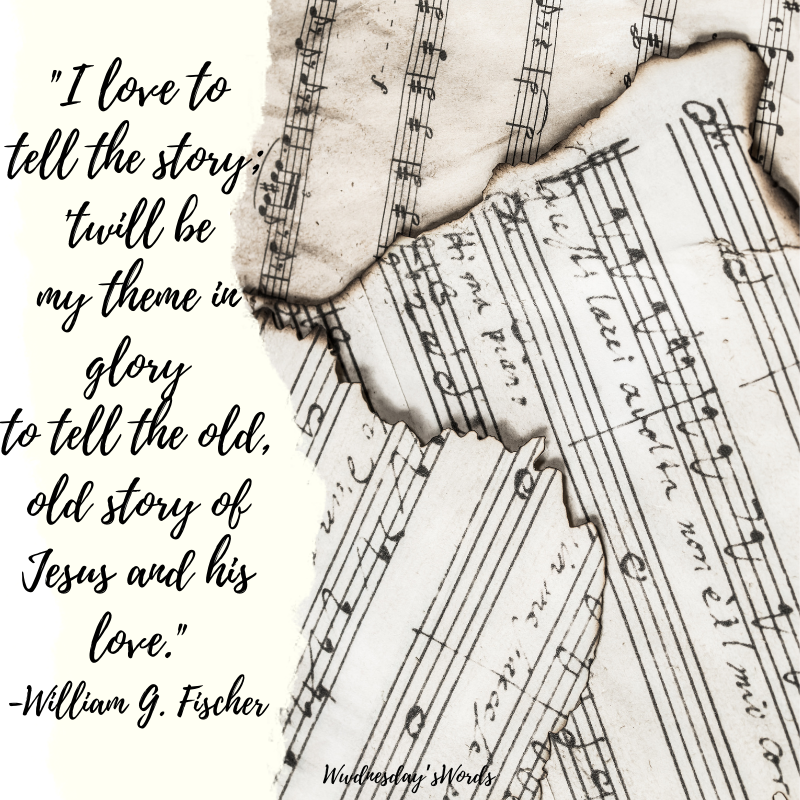 "I love to
tell the story;
'twill be
my theme in
glory
to tell the old,
old story of
Jesus and his
love."
-William G. Fischer
avolta non è il mio cor
Wwdnesday'sWords